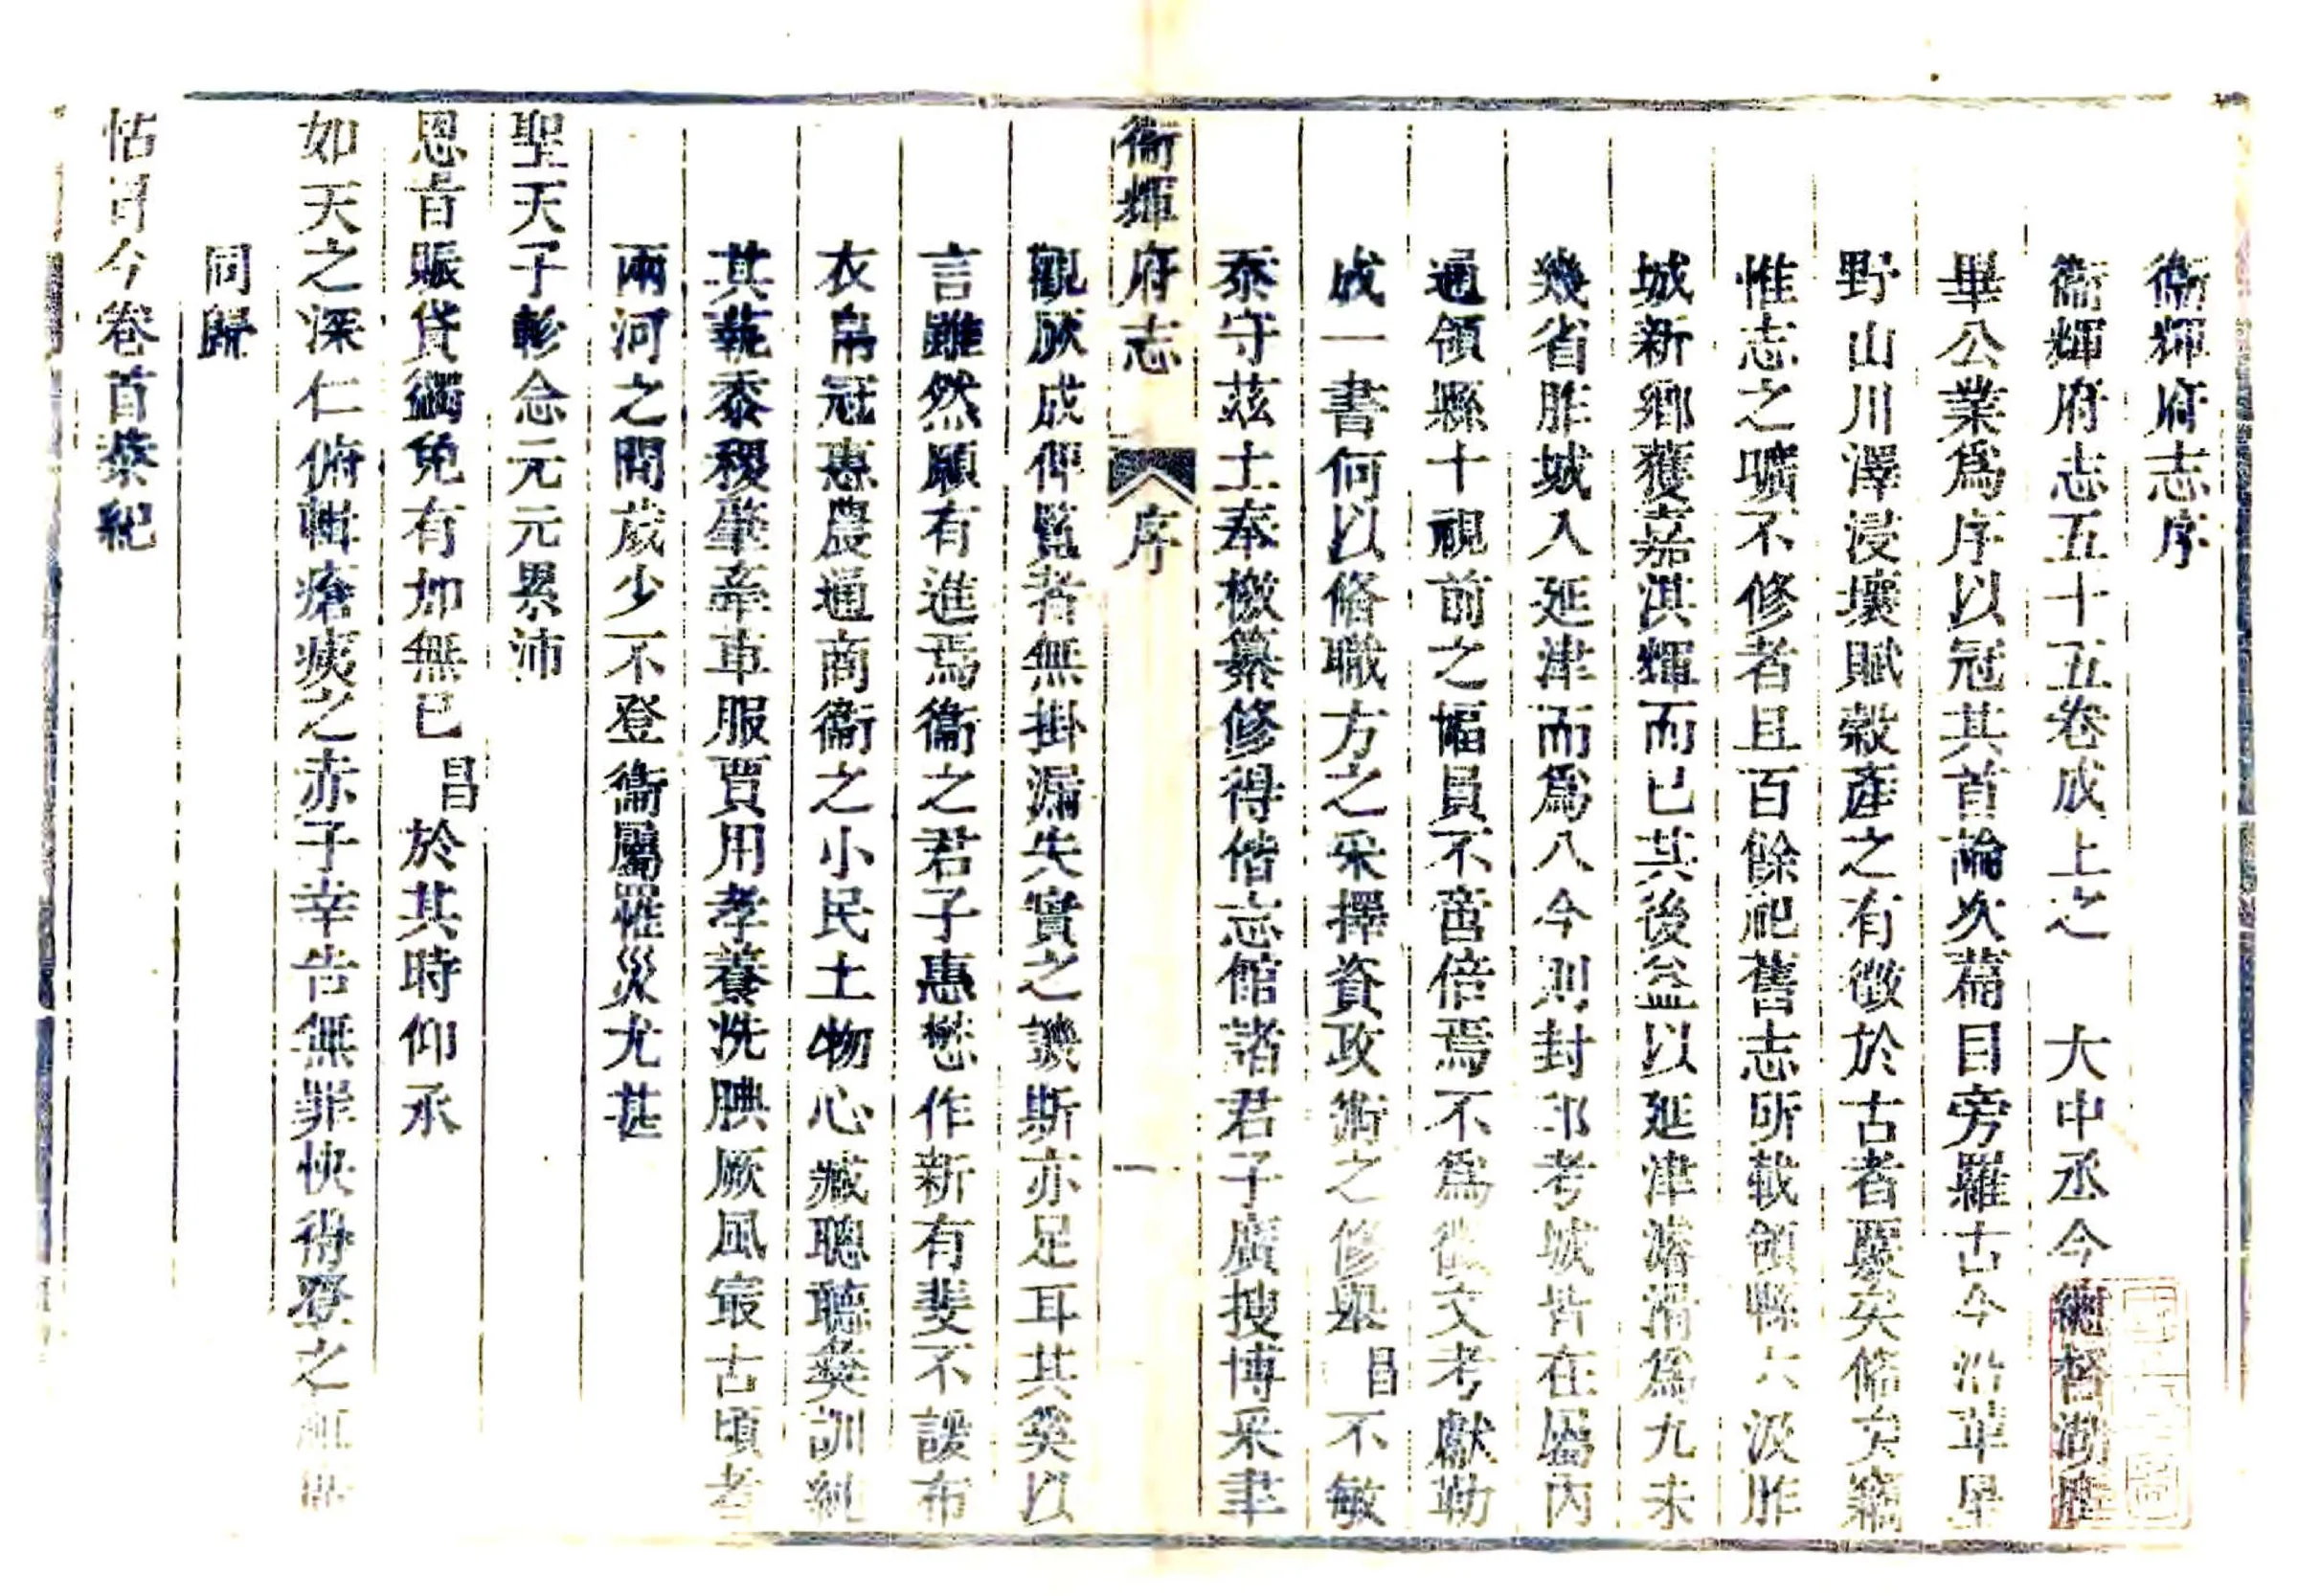 衞輝府志序
衞輝府志五十五卷成上之　大中丞今總督湖
畢公業爲序以冠其首論次篇目旁羅古今沿革星
野山川澤浸壤賦穀產之有徵於古者覈矣備矣竊
惟志之曠不修者且百餘祀舊志所載領縣六汲胙
城新鄉獲嘉淇輝而已其後益以延津濬滑爲九未
幾省胙城入延津而爲八今則封邱考城皆在屬內
通領縣十視前之幅員不啻倍焉不爲徵文考獻勒
成一書何以脩職方之采擇資攻術之修舉昌不敏
忝守茲土奉檄纂修得偕志館諸君子廣搜博采聿
衞輝府志　序　一
觀厥成俾覽者無掛漏失實之譏斯亦足耳其奚以
言雖然願有進焉衞之君子惠愗作新有斐不諼布
衣帛冠惠農通商衞之小民土物心臧聰聽彝訓純
其藝黍稷肇牽車服賈用孝養洗腆厥風最古頃者
兩河之間歲少不登衞屬罹災尤甚
聖天子軫念元元累沛
恩旨賑貸蠲免有加無已昌於其時仰承
如天之深仁俯輯瘡痍之赤子幸告無罪快得登之
同歸
怙冒今卷首恭紀